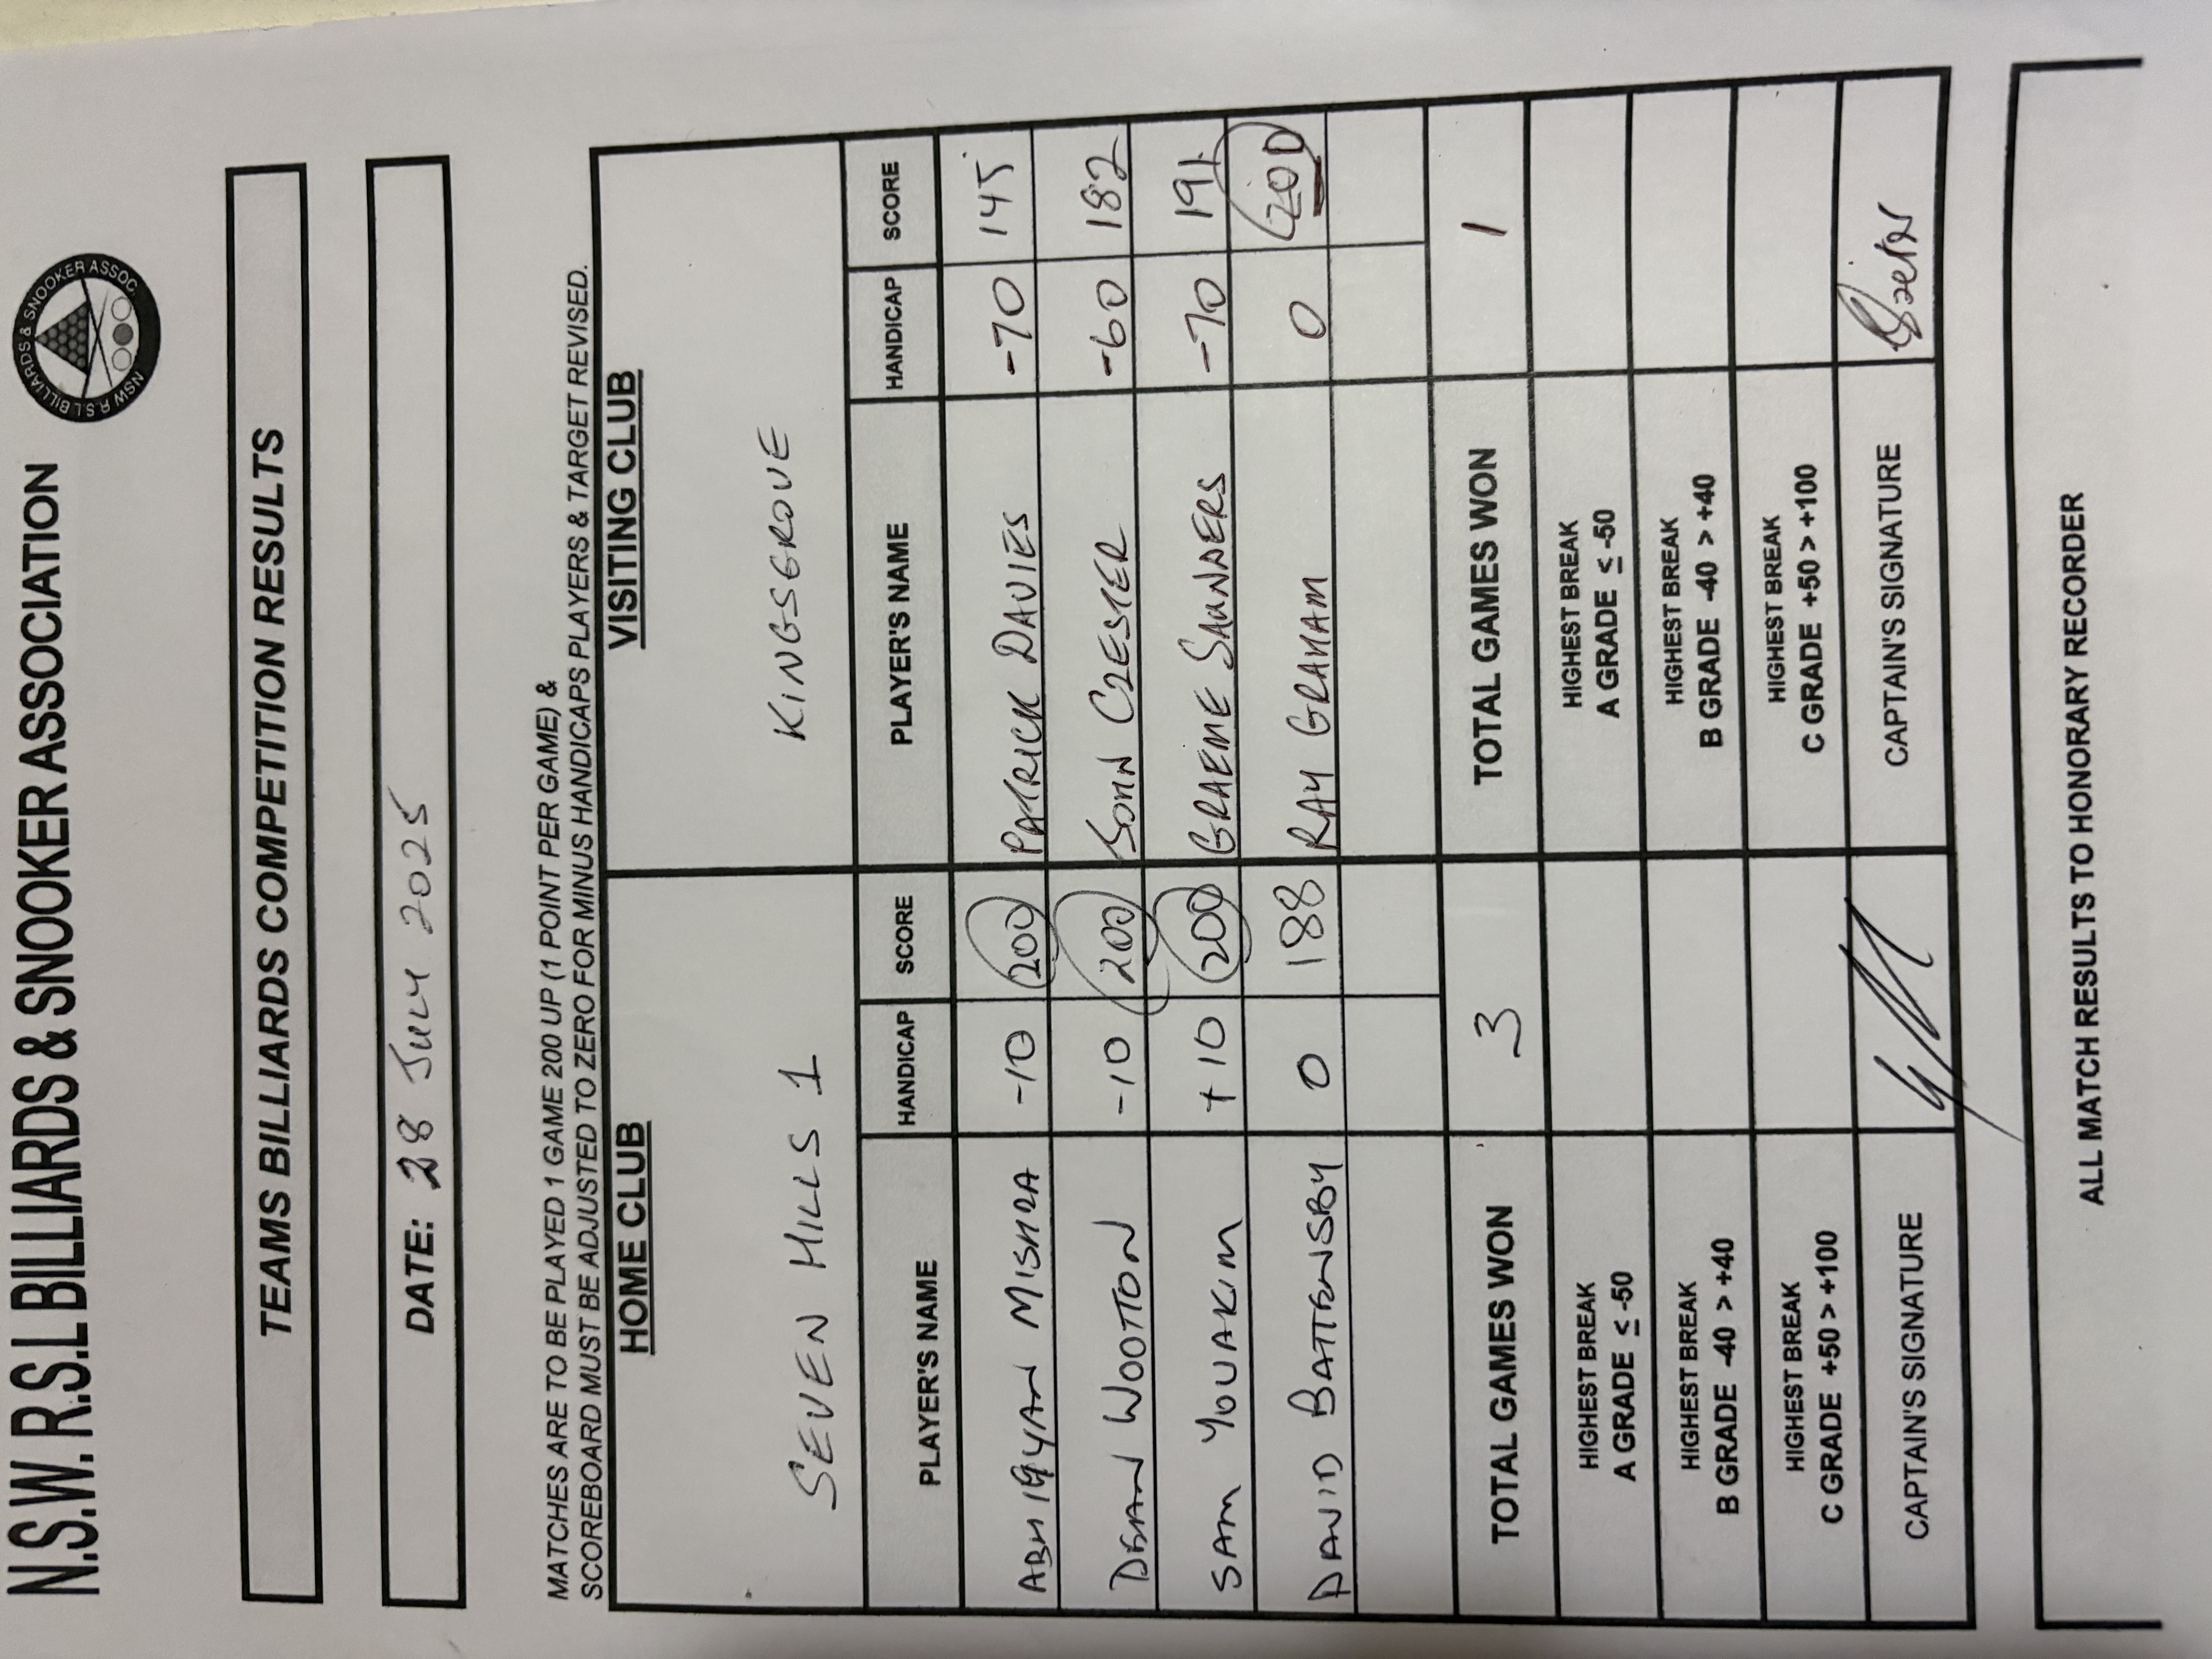 N.S.W. R.S.L BILLIARDS & SNOOKER ASSOCIATION
NSW R.S.L BILLIARDS & SNOOKER ASSOC.
TEAMS BILLIARDS COMPETITION RESULTS
DATE: 28 July 2025
MATCHES ARE TO BE PLAYED 1 GAME 200 UP (1 POINT PER GAME) &
SCOREBOARD MUST BE ADJUSTED TO ZERO FOR MINUS HANDICAPS PLAYERS & TARGET REVISED.
HOME CLUB VISITING CLUB
SEVEN HILLS 1 KINGSGROVE
PLAYER'S NAME HANDICAP SCORE PLAYER'S NAME HANDICAP SCORE
ABHIGYAN MISHRA -10 200 PATRICK DAVIES -70 145
DEAN WOOTTON -10 200 JOHN CZESTER -60 182
SAM YOUAKIM +10 200 GRAEME SAUNDERS -70 191
DAVID BATTENSBY 0 188 RAY GRAHAM 0 200
TOTAL GAMES WON 3 TOTAL GAMES WON 1
HIGHEST BREAK HIGHEST BREAK
A GRADE ≤ -50 A GRADE ≤ -50
HIGHEST BREAK HIGHEST BREAK
B GRADE -40 > +40 B GRADE -40 > +40
HIGHEST BREAK HIGHEST BREAK
C GRADE +50 > +100 C GRADE +50 > +100
CAPTAIN'S SIGNATURE CAPTAIN'S SIGNATURE
ALL MATCH RESULTS TO HONORARY RECORDER